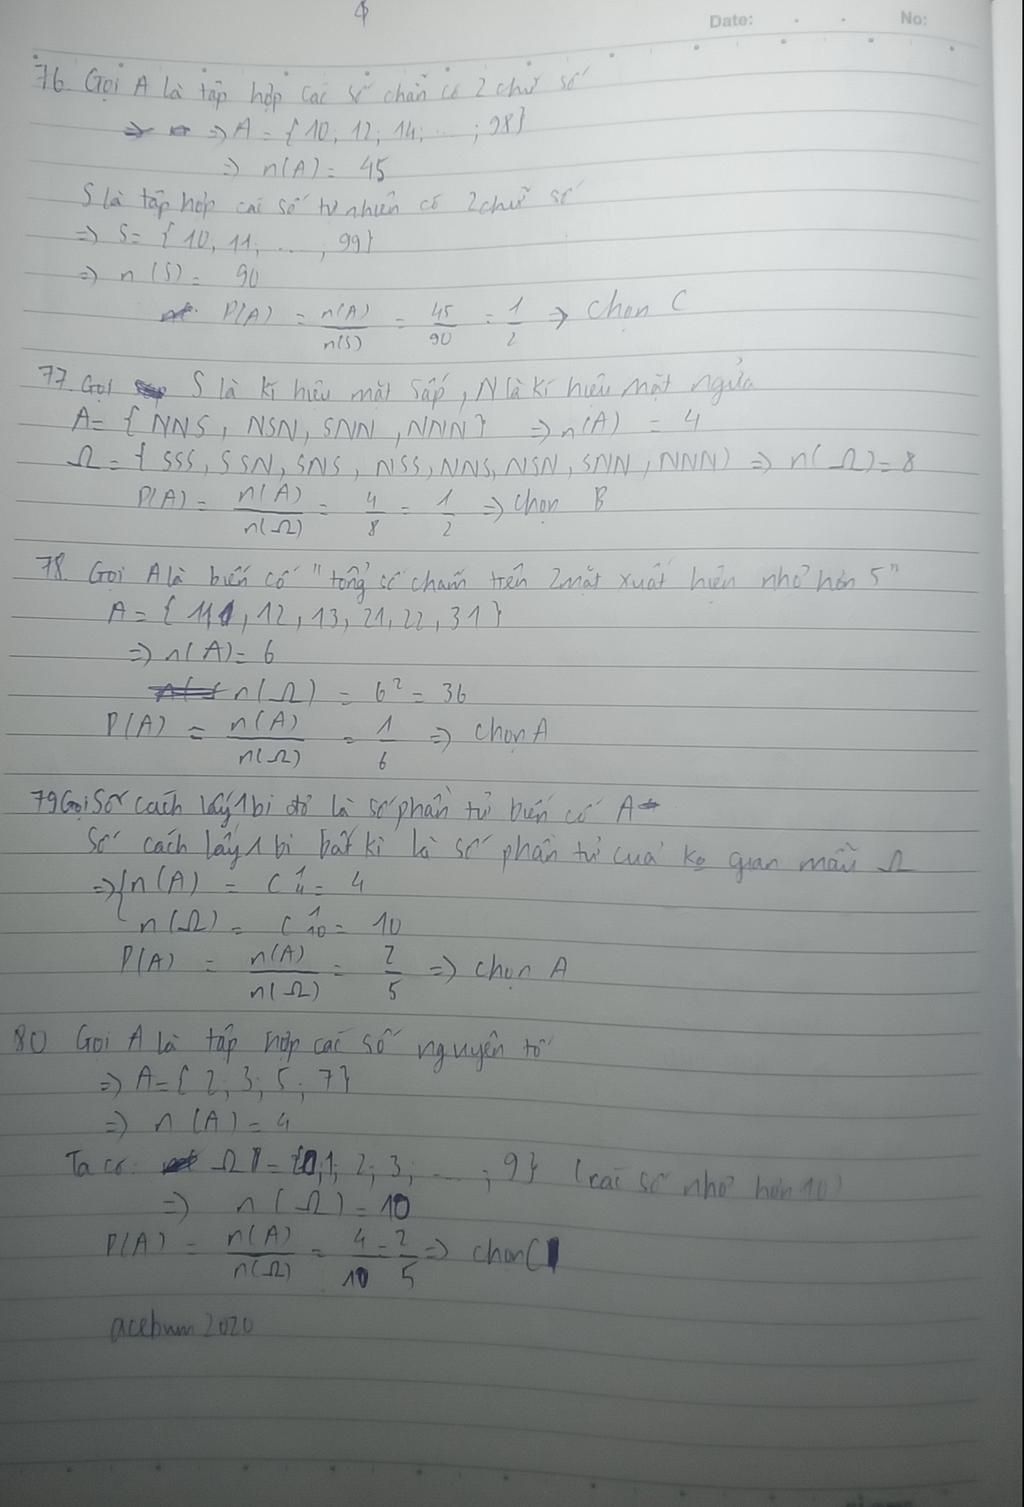 4
Date: No:
76. Gọi A là tập hợp các số chẵn có 2 chữ số
=> A = {10; 12; 14; ...; 98}
=> n(A) = 45
S là tập hợp các số tự nhiên có 2 chữ số
=> S = {10, 11, ..., 99}
=> n(S) = 90
P(A) = n(A)/n(S) = 45/90 = 1/2 => Chọn C
77. Gọi S là kí hiệu mặt sấp, N là kí hiệu mặt ngửa
A = {NNS, NSN, SNN, NNN} => n(A) = 4
Ω = {SSS, SSN, SNS, NSS, NNS, NSN, SNN, NNN) => n(Ω) = 8
P(A) = n(A)/n(Ω) = 4/8 = 1/2 => Chọn B
78. Gọi A là biến cố "tổng số chấm trên 2 mặt xuất hiện nhỏ hơn 5"
A = {11, 12, 13, 21, 22, 31}
=> n(A) = 6
n(Ω) = 6² = 36
P(A) = n(A)/n(Ω) = 1/6 => chọn A
79 Gọi Số cách lấy 1 bi đỏ là số phần tử biến cố A
Số cách lấy 1 bi bất kì là số phần tử của ko gian mẫu Ω
=> { n(A) = C¹₄ = 4
n(Ω) = C¹₁₀ = 10
P(A) = n(A)/n(Ω) = 2/5 => chọn A
80 Gọi A là tập hợp các số nguyên tố
=> A = {2; 3; 5; 7}
=> n(A) = 4
Ta có: Ω = {0,1; 2; 3; ...; 9} (các số nhỏ hơn 10)
=> n(Ω) = 10
P(A) = n(A)/n(Ω) = 4/10 = 2/5 => chọn C
acebum 2020